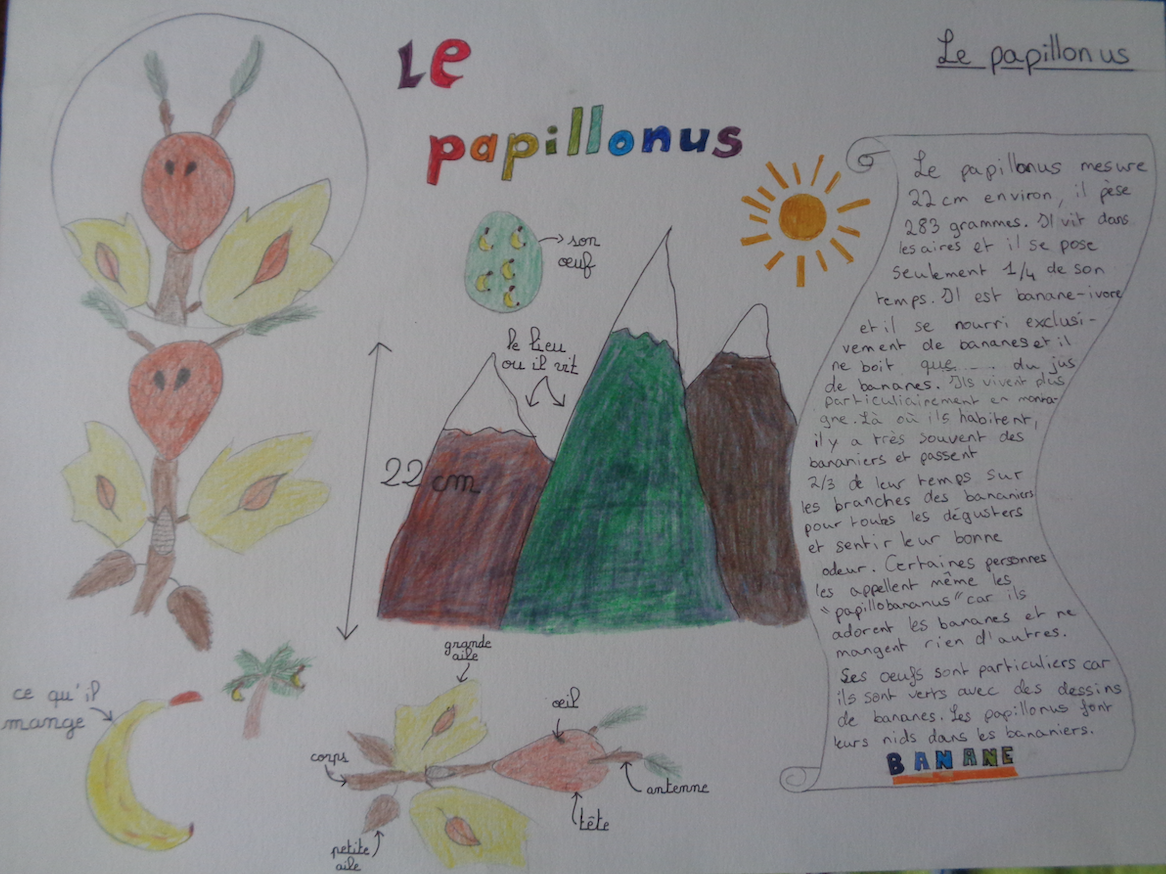 Le
papillonus
Le papillonus
son
oeuf
le lieu
ou il vit
22 cm
Le papillonus mesure
22 cm environ, il pèse
283 grammes. Il vit dans
les aires et il se pose
seulement 1/4 de son
temps. Il est banane-ivore
et il se nourri exclusi-
vement de bananes et il
ne boit que ...... du jus
de bananes. Ils vivent plus
particuliairement en monta-
gne. Là où ils habitent,
il y a très souvent des
bananiers et passent
2/3 de leur temps sur
les branches des bananiers
pour toubs les dégusters
et sentir leur bonne
odeur. Certaines personnes
les appellent même les
"papillobananus" car ils
adorent les bananes et ne
mangent rien d'autres.
Ses oeufs sont particuliers car
ils sont verts avec des dessins
de bananes. Les papillonus font
leurs nids dans les bananiers.
BANANE
ce qu'il
mange
grande
aile
oeil
corps
antenne
tête
petite
aile